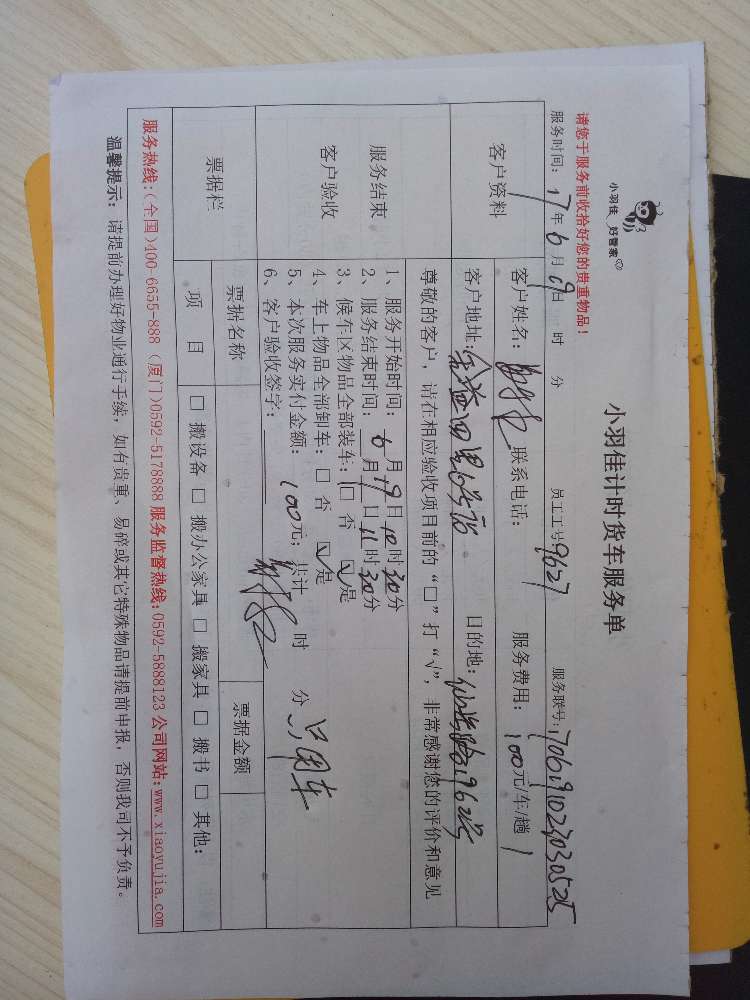 小羽佳 好管家
小羽佳计时货车服务单
请您于服务前收拾好您的贵重物品!
服务时间: 17年6月19日 时 分 员工工号9627 服务联号:
客户资料
客户姓名: 联系电话: 服务费用: 100元/车/趟
客户地址: 目的地:
服务结束
客户验收
尊敬的客户，请在相应验收项目前的“□”打“√”，非常感谢您的评价和意见
1、服务开始时间: 6月19日10时30分
2、服务结束时间: 6月19日11时30分
3、候车区物品全部装车: □ 否 ☑ 是
4、车上物品全部卸车: □ 否 ☑ 是
5、本次服务实付金额: 100元; 共计 时 分 只用车
6、客户验收签字:
票据栏
票据名称 票据金额
项 目 □ 搬设备 □ 搬办公家具 □ 搬家具 □ 搬书 □ 其他:
服务热线:(全国)400-6655-888 (厦门)0592-5178888 服务监督热线:0592-5888123 公司网站:www.xiaoyujia.com
温馨提示: 请提前办理好物业通行手续，如有贵重、易碎或其它特殊物品请提前申报，否则我司不予负责。